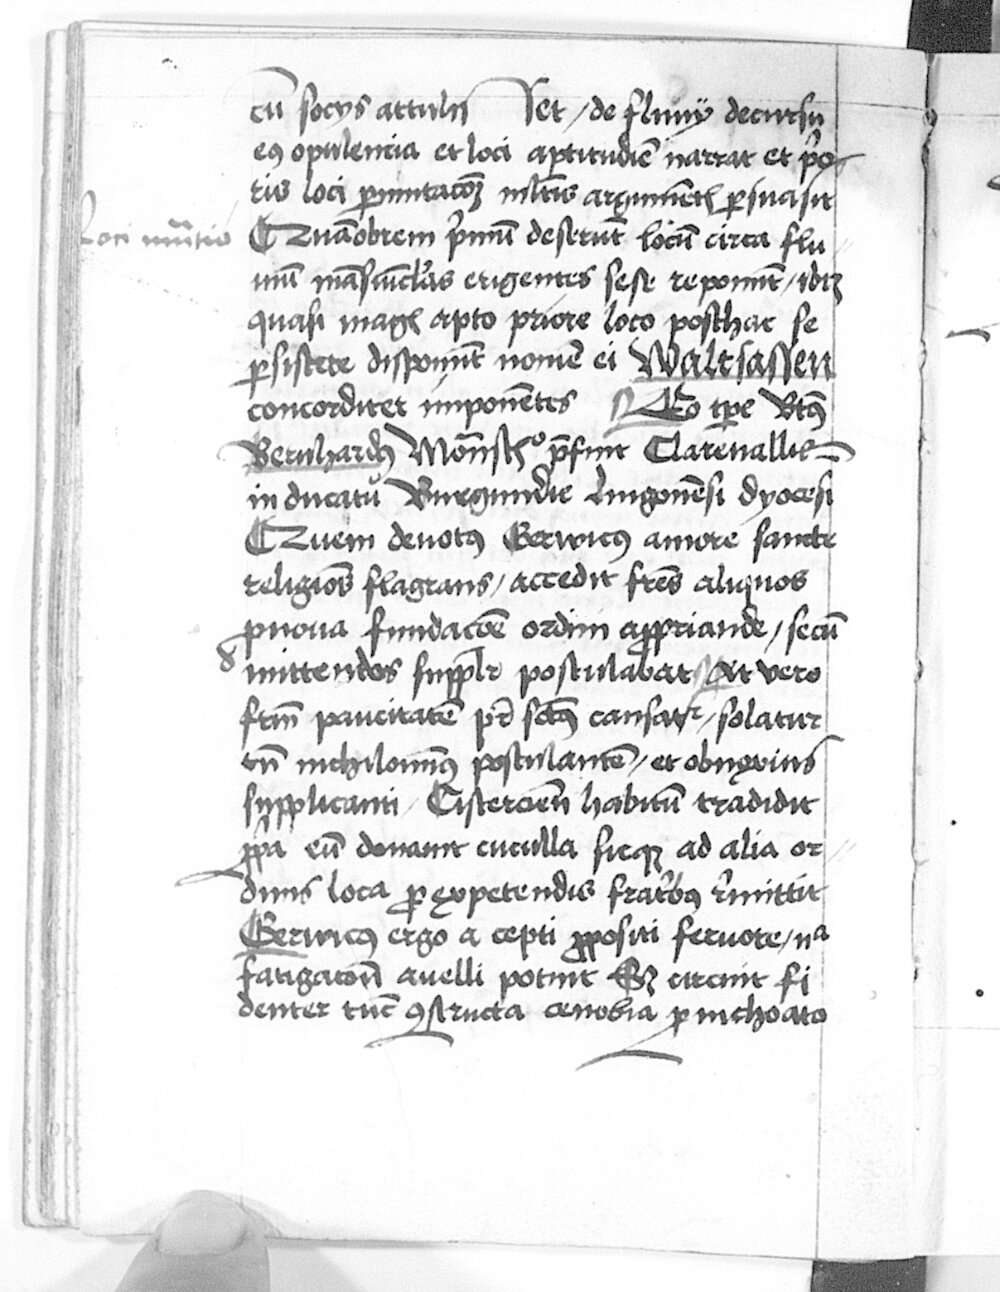 cū socys attulit et / de fluuy decursu
eꝯ opulencia et loci aptitudiē narrat et pͥo
ris loci ꝑmutacōꝫ ml̄tis argumētꝭ ꝑsuasit
Loci mutatio
Quāobrem pͥmū deserūt locū circa flu
uiū māsiūcl̄as erigentes sese reponūt / ibiꝫ
quasi magꝭ apto priore loco posthac se
ꝑsistere disponūt nomē ei Waltsassen
concorditer imponētes Eo tꝑe Btꝯ
Bernhardꝯ p̄fuit Clareuallis
in ducatu Burgundie Lingonēsi dyocesi
Quem deuotꝯ Gerwicꝯ amore sancte
religiōis flagrans / accedit fr̄es aliquos
ꝓ noua fundacōe ordini apꝓpriande / secū
mittendos suppl̄r postulabat At vero
fr̄m paucitatē pr̄ sctꝯ causatr / solatur
tn̄ nichilominꝯ postulantē / et obnixius
supplicanti / Cistercien̄ habitū tradidit
ꝓpͥa eū donauit cuculla sicqꝫ ad alia or
dinis loca ꝓ expetendis fratribꝯ remittit
Gerwicꝯ ergo a cepti ꝓpositi feruore / nͣ
fatigatōn̄ auelli potuit Sꝫ circuit fi
denter tūc ꝯstructa cenobia ꝓ inchoato